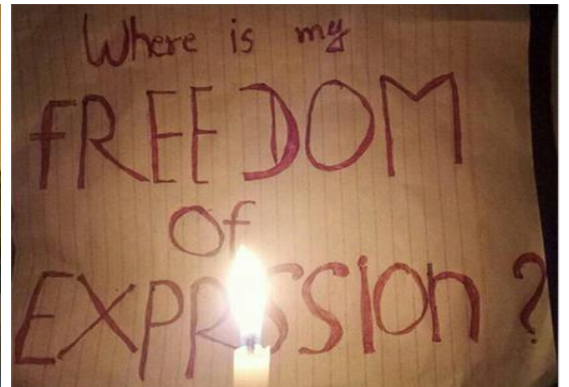 Where is my
fREEDOM
Of
EXPRESSION ?